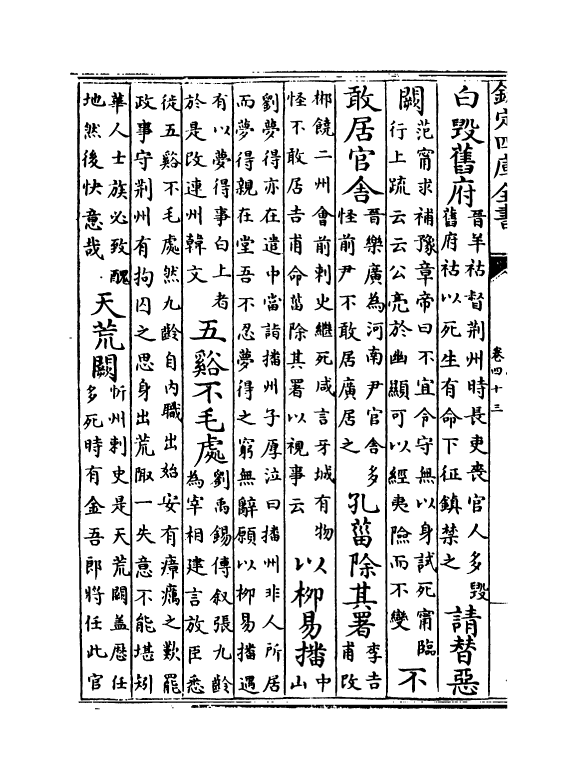 欽定四庫全書 卷四十三
白毀舊府
晉羊祜督荆州時長吏喪官人多毀
舊府祜以死生有命下征鎮禁之
請替惡
闕
范甯求補豫章帝曰不宜令守無以身試死甯臨
行上疏云云公亮於幽顯可以經夷險而不變
不
敢居官舍
晉樂廣為河南尹官舍多
怪前尹不敢居廣居之
孔葘除其署
李吉
甫改
郴饒二州會前刺史繼死咸言牙城有物
怪不敢居吉甫命葘除其署以視事云
以柳易播
中
山
劉夢得亦在遣中當詣播州子厚泣曰播州非人所居
而夢得親在堂吾不忍夢得之窮無辭願以柳易播遇
有以夢得事白上者
於是改連州韓文
五谿不毛處
劉禹錫傳叙張九齡
為宰相建言放臣悉
徙五谿不毛處然九齡自內職出始安有瘴癘之歎罷
政事守荆州有拘囚之思身出荒陬一失意不能堪矧
華人士族必致醜
地然後快意哉
天荒闕
忻州刺史是天荒闕蓋歷任
多死時有金吾郎將任此官